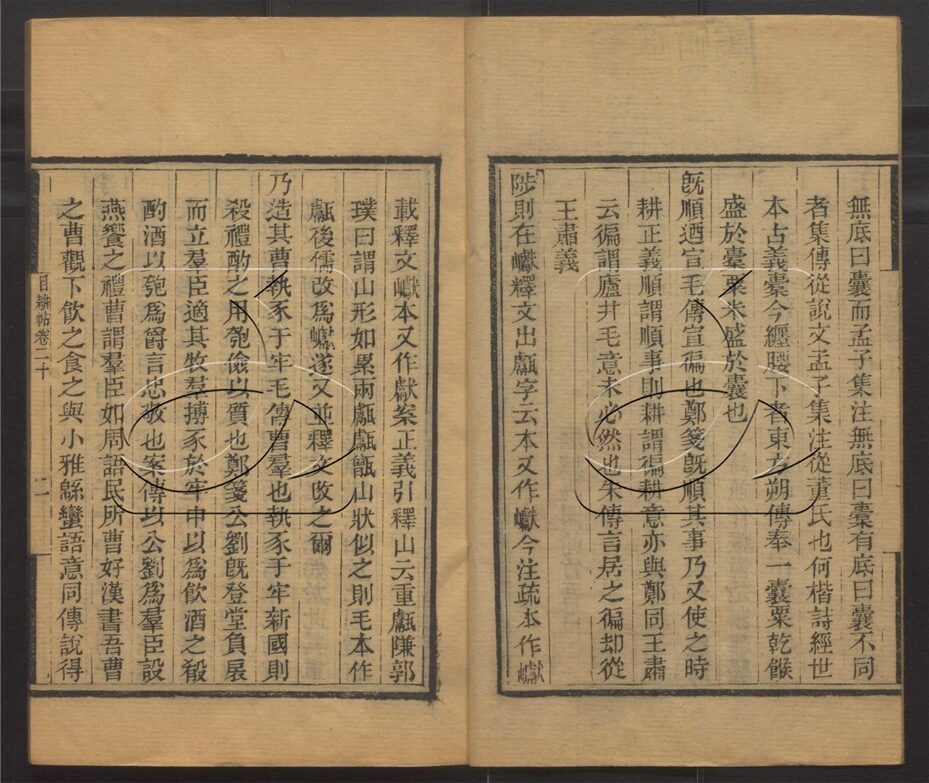 無底曰囊而孟子集注無底曰橐有底曰囊不同
者集傳從說文孟子集注從董氏也何楷詩經世
本古義橐今纏腰下者東方朔傳奉一囊粟乾餱
盛於橐粟米盛於囊也
既順迺宣毛傳宣徧也鄭箋既順其事乃又使之時
耕正義順謂順事則耕謂徧耕意亦與鄭同王肅
云徧謂廬井毛意未必然也朱傳言居之徧却從
王肅義
陟則在巘釋文出甗字云本又作巘今注疏本作巘
載釋文巘本又作獻案正義引釋山云重甗隒郭
璞曰謂山形如累兩甗甗甑山狀似之則毛本作
甗後儒改為巘遂又並釋文改之爾
乃造其曹執豕于牢毛傳曹羣也執豕于牢新國則
殺禮酌之用匏儉以質也鄭箋公劉既登堂負扆
而立羣臣適其牧羣搏豕於牢中以為飲酒之殽
酌酒以匏為爵言忠敬也案傳以公劉為羣臣設
燕饗之禮曹謂羣臣如周語民所曹好漢書吾曹
之曹觀下飲之食之與小雅緜蠻語意同傳說得
目耕帖卷二十
二